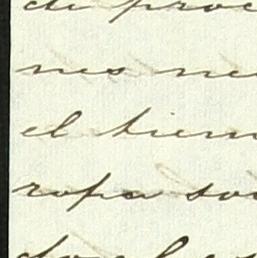 de proc
nes ne
el tiem
ropa so